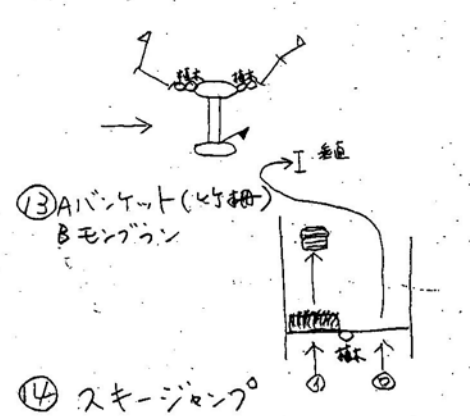 植木 植木
垂直
⑬ A バンケット(竹柵)
B モンブラン
植木
① ②
⑭ スキージャンプ